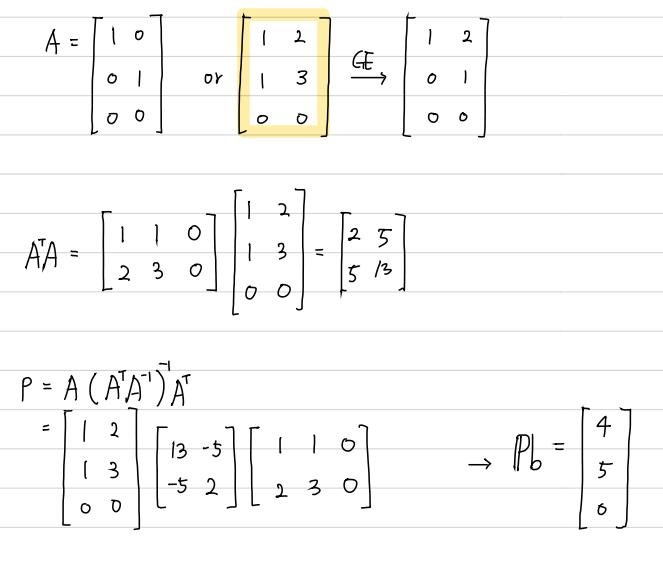 A = [1 0; 0 1; 0 0] or [1 2; 1 3; 0 0] GE→ [1 2; 0 1; 0 0]
AᵀA = [1 1 0; 2 3 0] [1 2; 1 3; 0 0] = [2 5; 5 13]
P = A (AᵀA⁻¹)⁻¹ Aᵀ
= [1 2; 1 3; 0 0] [13 -5; -5 2] [1 1 0; 2 3 0] → Pb = [4; 5; 0]